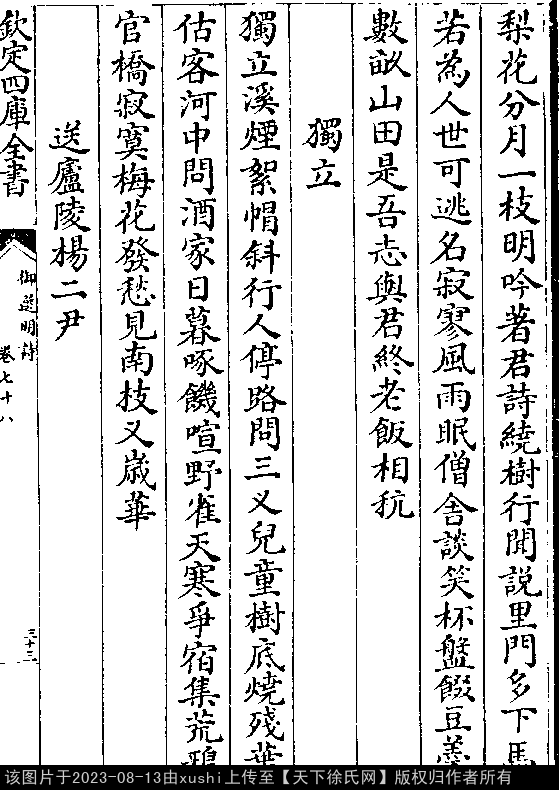 梨花分月一枝明吟著君詩繞樹行聞說里門多下馬
若為人世可逃名寂寥風雨眠僧舍談笑杯盤餟豆羹
數畝山田是吾志與君終老飯相秔
獨立
獨立溪煙絮帽斜行人停路問三乂兒童樹底燒殘葉
估客河中問酒家日暮啄饑喧野雀天寒爭宿集荒
官橋寂寞梅花發愁見南枝又歲華
送廬陵楊二尹
欽定四庫全書
御選明詩
卷七十八
三十三
该图片于2023-08-13由xushi上传至【天下徐氏网】版权归作者所有